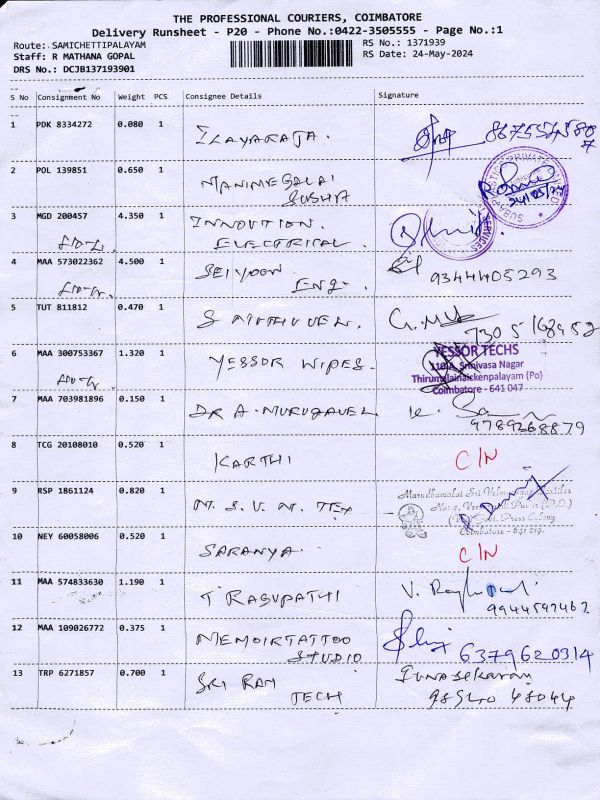 THE PROFESSIONAL COURIERS, COIMBATORE
Delivery Runsheet - P20 - Phone No.:0422-3505555 - Page No.:1
Route: SAMICHETTIPALAYAM
RS No.: 1371939
Staff: R MATHANA GOPAL
RS Date: 24-May-2024
DRS No.: DCJB137193901
S No Consignment No Weight PCS Consignee Details Signature
1 PDK 8334272 0.080 1 ILAYARAJA.
2 POL 139851 0.650 1 MANIMEGALAI
SUSHA
24/05/24
3 MGD 200457 4.350 1 INNOVTION.
ELECTRICAL.
4 MAA 573022362 4.500 1 SEIYOON
ENG.
9344405293
5 TUT 811812 0.470 1
7305168952
6 MAA 300753367 1.320 1 YESSOR WIPES.
YESSOR TECHS
Srinivasa Nagar
(Po)
Coimbatore - 641 047
7 MAA 703981896 0.150 1 DR A. MURUGAVEL
9789268879
8 TCG 20108010 0.520 1 KARTHI C/N
9 RSP 1861124 0.820 1 M. S. V. M. TEX
Marudhamalai Sri
Govt. Press Colony
Coimbatore - 641 019.
10 NEY 60058006 0.520 1 SARANYA. C/N
11 MAA 574833630 1.190 1 T RAGUPATHI
9944597462
12 MAA 109026772 0.375 1 MEMOIRTATTOO
STUDIO
6379620314
13 TRP 6271857 0.700 1 SRI RAM
TECH
Gunasekaran
48044